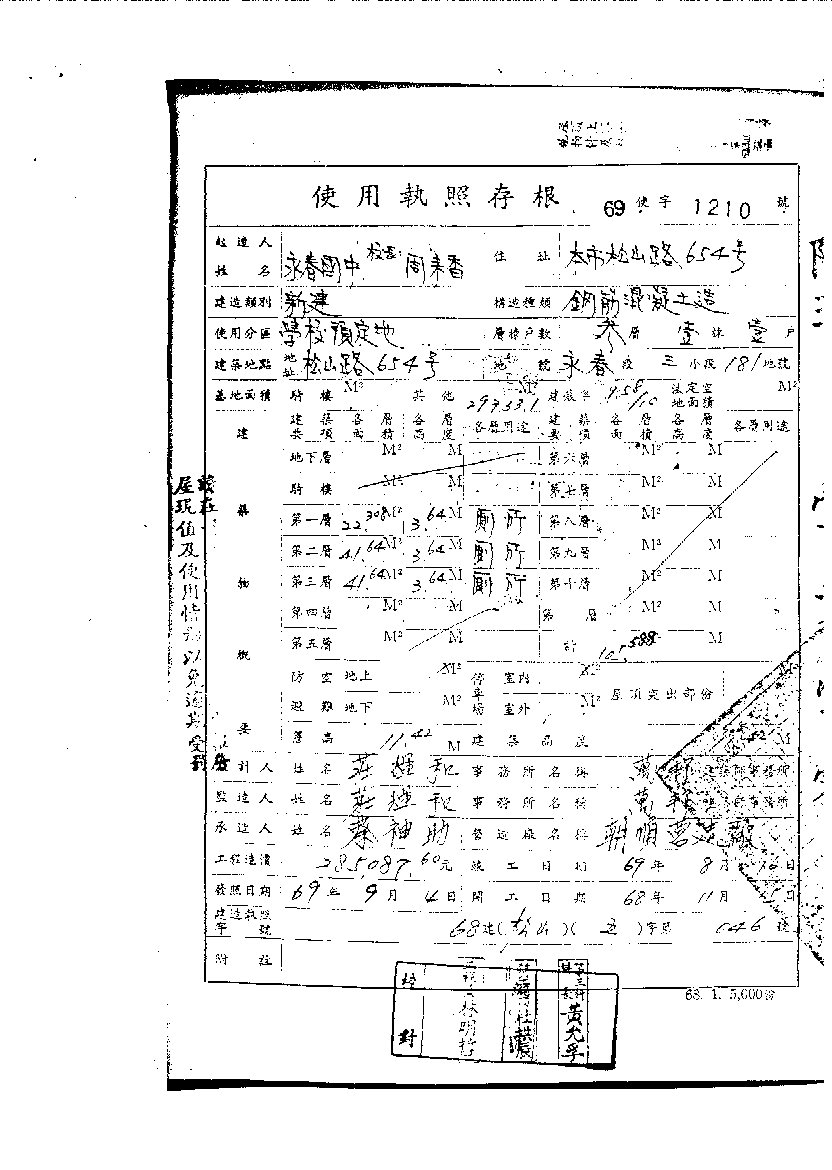 使用執照存根 69 使字 1210 號
起造人姓名 永春國中 校長 周耒香 住址 本市松山路654号
建造類別 新建 構造種類 鋼筋混凝土造
使用分區 學校預定地 層棟戶數 參層 壹棟 壹戶
建築地點 地址 松山路654号 地號 永春段 三小段 181地號
基地面積 騎樓 M² 其他 29733.1 M² 建蔽率 法定空地面積 M²
建築物概要 建築要項 各層面積 各層高度 各層用途 建築要項 各層面積 各層高度 各層用途
地下層 M² M 第六層 M² M
騎樓 M² M 第七層 M² M
第一層 22.308 M² 3.64 M 廁所 第八層 M² M
第二層 41.64 M² 3.64 M 廁所 第九層 M² M
第三層 41.64 M² 3.64 M 廁所 第十層 M² M
第四層 M² M 第 層 M² M
第五層 M² M 計 105.588 M² M
防空避難 地上 M² 停車場 室內 M² 屋頂突出部份
地下 M² 室外 M²
簷高 11.42 M 建築高度 M
設計人 姓名 莊輝和 事務所名稱
監造人 姓名 莊輝和 事務所名稱
承造人 姓名 蔡神助 營造廠名稱 朝順營造廠
工程造價 285,087.60元 竣工日期 69年 8月 日
發照日期 69年 9月 4日 開工日期 68年 11月 日
建造執照字號 68建( )( )字第 046 號
附註
68.1.5,000份
校對
林明哲
第三科 黃允孚
屋現值及使用情形以免逾期受罰